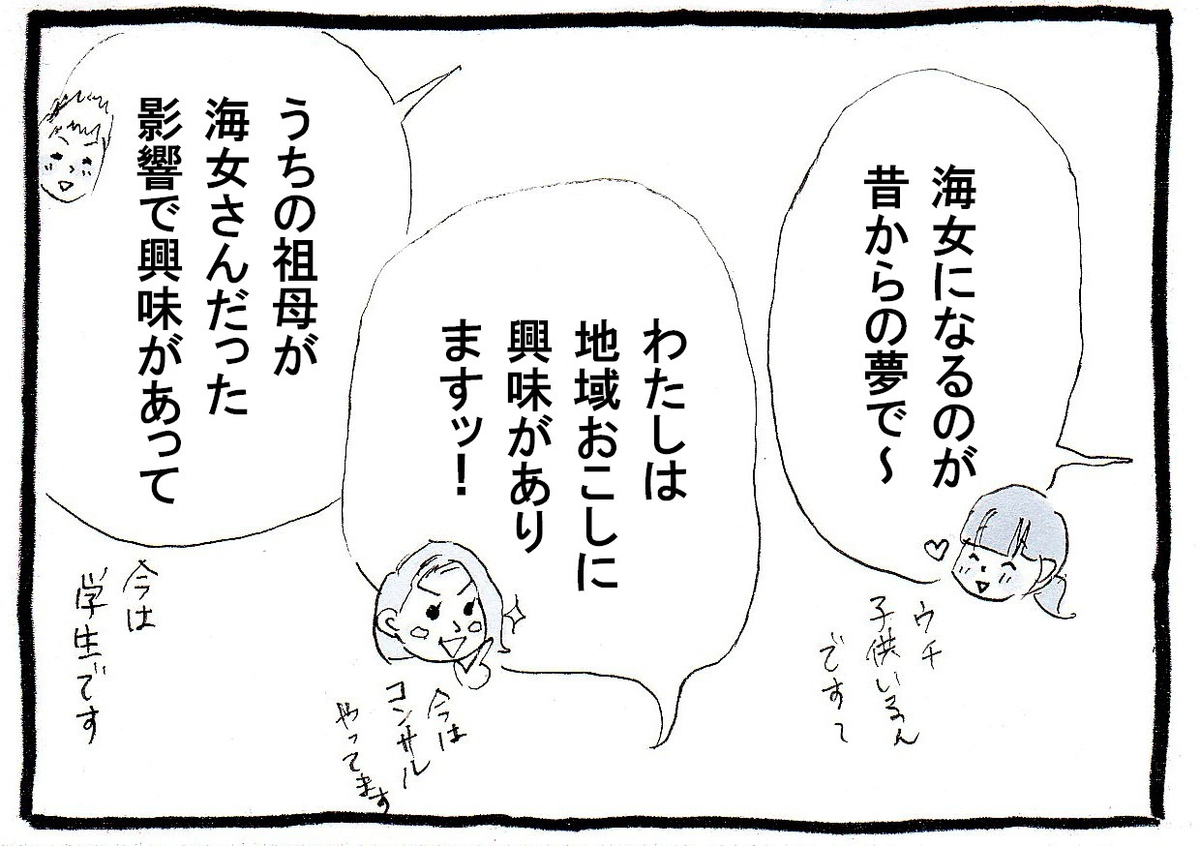 海女になるのが
昔からの夢で～
ウチ
子供いるん
ですて
わたしは
地域おこしに
興味があり
ますッ！
今は
コンサル
やってます
うちの祖母が
海女さんだった
影響で興味があって
今は
学生です